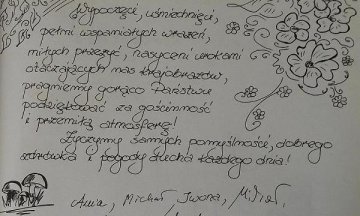 Wypoczęci, uśmiechnięci,
pełni wspaniałych wrażeń,
miłych przeżyć, nasyceni urokami
otaczających nas krajobrazów,
pragniemy gorąco Państwu
podziękować za gościnność
i przemiłą atmosferę!
Życzymy samych pomyślności, dobrego
zdrówka i pogody ducha każdego dnia!
Anna, Michał, Iwona,